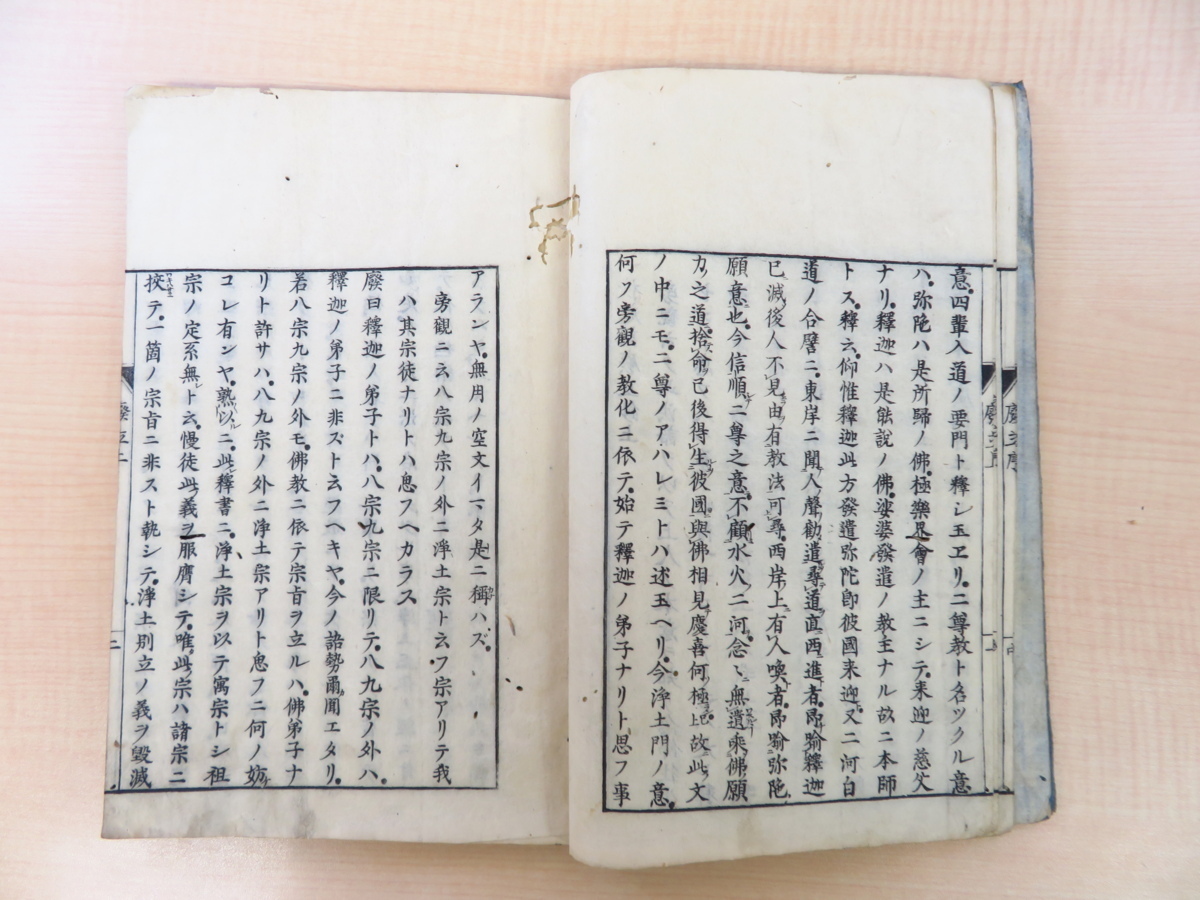 意。四輩入道ノ要門ト釋シ玉ヱリ。二尊教ト名ツクル意
ハ。弥陀ハ是所歸ノ佛。極樂界會ノ主ニシテ。来迎ノ慈父
ナリ。釋迦ハ是能説ノ佛。娑婆發遣ノ教主ナル故ニ本師
トス。釋云。仰惟釋迦此方發遣弥陀即彼國来迎。又二河白
道ノ合譬ニ。東岸ニ聞人聲勸遣尋道直西進者。即喻釋迦
已滅後人不見由有教法可尋。西岸上有人喚者。即喻弥陀
願意也。今信順二尊之意。不顧水火二河念〻無遺乘佛願
力之道捨命已後得生彼國與佛相見慶喜何極已。故此文
ノ中ニモ。二尊ノアハレミトハ述玉ヘリ。今浄土門ノ意。
何フ旁觀ノ教化ニ依テ。始テ釋迦ノ弟子ナリト思フ事
アランヤ。無用ノ空文イマタ是ニ稱ハズ。
旁觀ニ云八宗九宗ノ外ニ浄土宗ト云フ宗アリテ我
ハ其宗徒ナリトハ思フヘカラス
廢曰釋迦ノ弟子トハ。八宗九宗ニ限リテ。八九宗ノ外ハ。
釋迦ノ弟子ニ非ズト云フヘキヤ。今ノ語勢爾聞エタリ。
若八宗九宗ノ外モ。佛教ニ依テ宗旨ヲ立ルハ。佛弟子ナ
リト許サハ。八九宗ノ外ニ浄土宗アリト思フニ何ノ妨
コレ有ンヤ。熟以ニ。此釋書ニ。浄土宗ヲ以テ寓宗トシ祖
宗ノ定系無ト云。慢徒此義ヲ服膺シテ。唯此宗ハ諸宗ニ
挾テ。一箇ノ宗旨ニ非スト執シテ。浄土別立ノ義ヲ毀滅
廢立
二